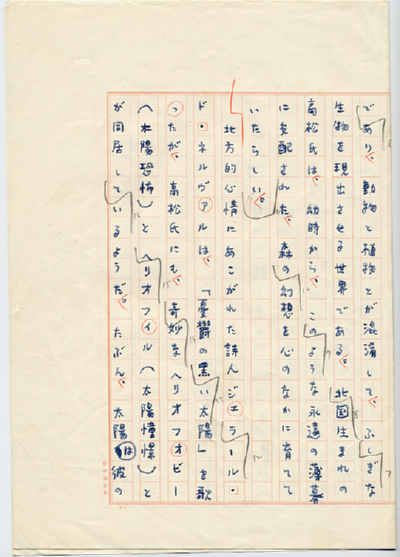 であり、動物と植物とが混淆して、ふしぎな
生物を現出させる世界である。北国生まれの
高松氏は、幼時から、このような永遠の薄暮
に支配された、森の幻想を心のなかに育てて
いたらしい。
北方的心情にあこがれた詩人ジェラール・
ド・ネルヴァルは、「憂鬱の黒い太陽」を歌
ったが、高松氏にも、奇妙なヘリオフォビー
(太陽恐怖)とヘリオフィル(太陽憧憬)と
が同居しているようだ。たぶん、太陽は彼の